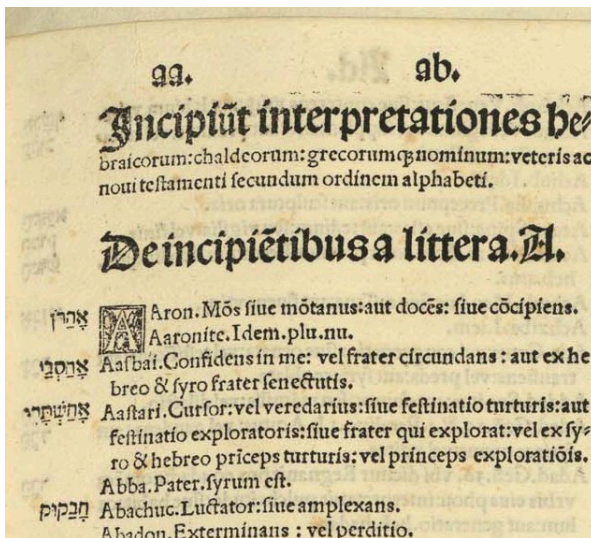 aa. ab.
Incipiūt interpretationes he⸗
braicorum:chaldeorum:grecorumqꝫ nominum:veteris ac
noui testamenti secundum ordinem alphabeti.
De incipiētibus a littera.A.
אַהֲרֹן Aaron.Mōs siue mōtanus:aut docēs: siue cōcipiens.
Aaronite.Idem.plu.nu.
אֲחַסְבַּי Aasbai.Confidens in me: vel frater circundans : aut ex he
breo & syro frater senectutis.
אֲחַשְׁתָּרִי Aastari.Cursor:vel veredarius:siue festinatio turturis:aut
festinatio exploratoris:siue frater qui explorat:vel ex sy⸗
ro & hebreo prīceps turturis: vel princeps exploratiōis.
Abba.Pater.syrum est.
חֲבַקּוּק Abachuc.Luctator:siue amplexans.
Abadon.Exterminans : vel perditio.